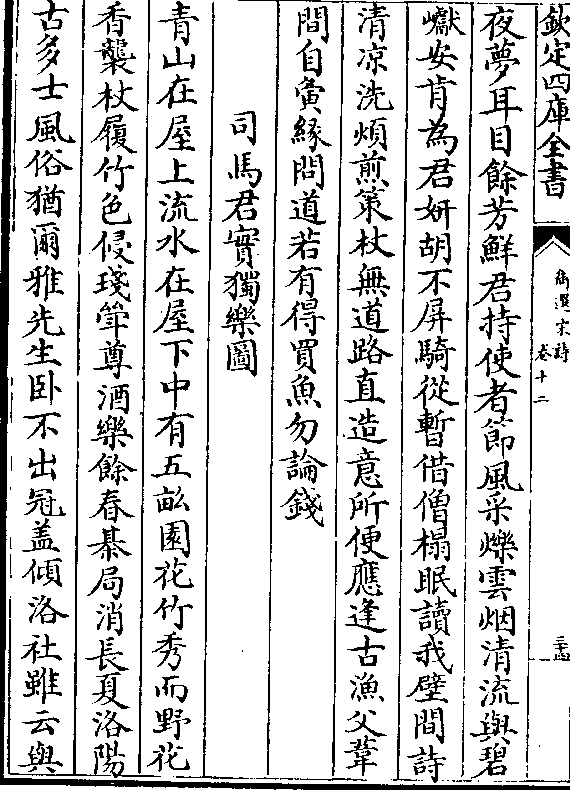 欽定四庫全書
御選宋詩
卷十二
夜夢耳目餘芳鮮君持使者節風采爍雲烟清流與碧
巘安肯為君妍胡不屏騎從暫借僧榻眠讀我壁間詩
清凉洗煩煎策杖無道路直造意所便應逢古漁父葦
間自夤緣問道若有得買魚勿論錢
司馬君實獨樂園
青山在屋上流水在屋下中有五畝園花竹秀而野花
香襲杖屨竹色侵琖斝尊酒樂餘春棊局消長夏洛陽
古多士風俗猶爾雅先生卧不出冠盖傾洛社雖云與